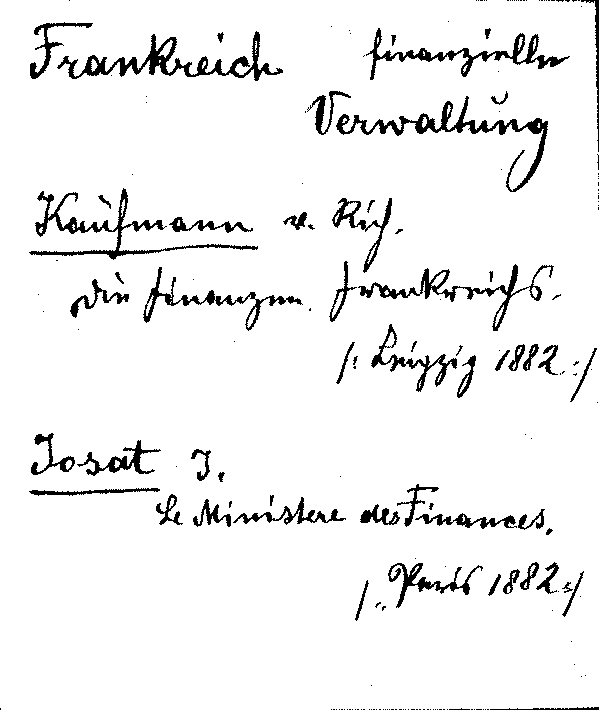 Frankreich finanzielle
Verwaltung
Kaufmann v. Rich.
Die Finanzen Frankreichs.
/: Leipzig 1882 :/
Josat J.
Le Ministere des Finances.
/: Paris 1882 :/